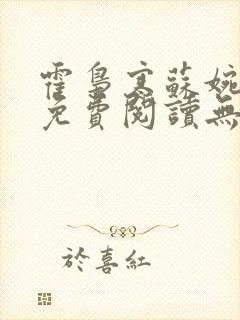 霍梟寒蘇婉
免費閱讀無
於喜紅